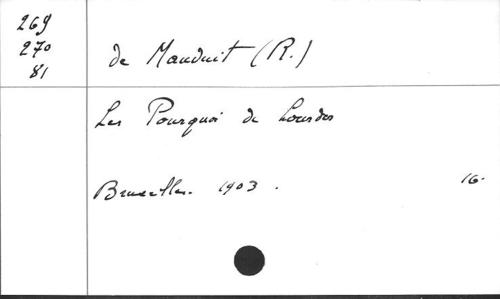 269
270
81
de Mauduit (R.)
Les Pourquoi de Lourdes
Bruxelles. 1903.
16.